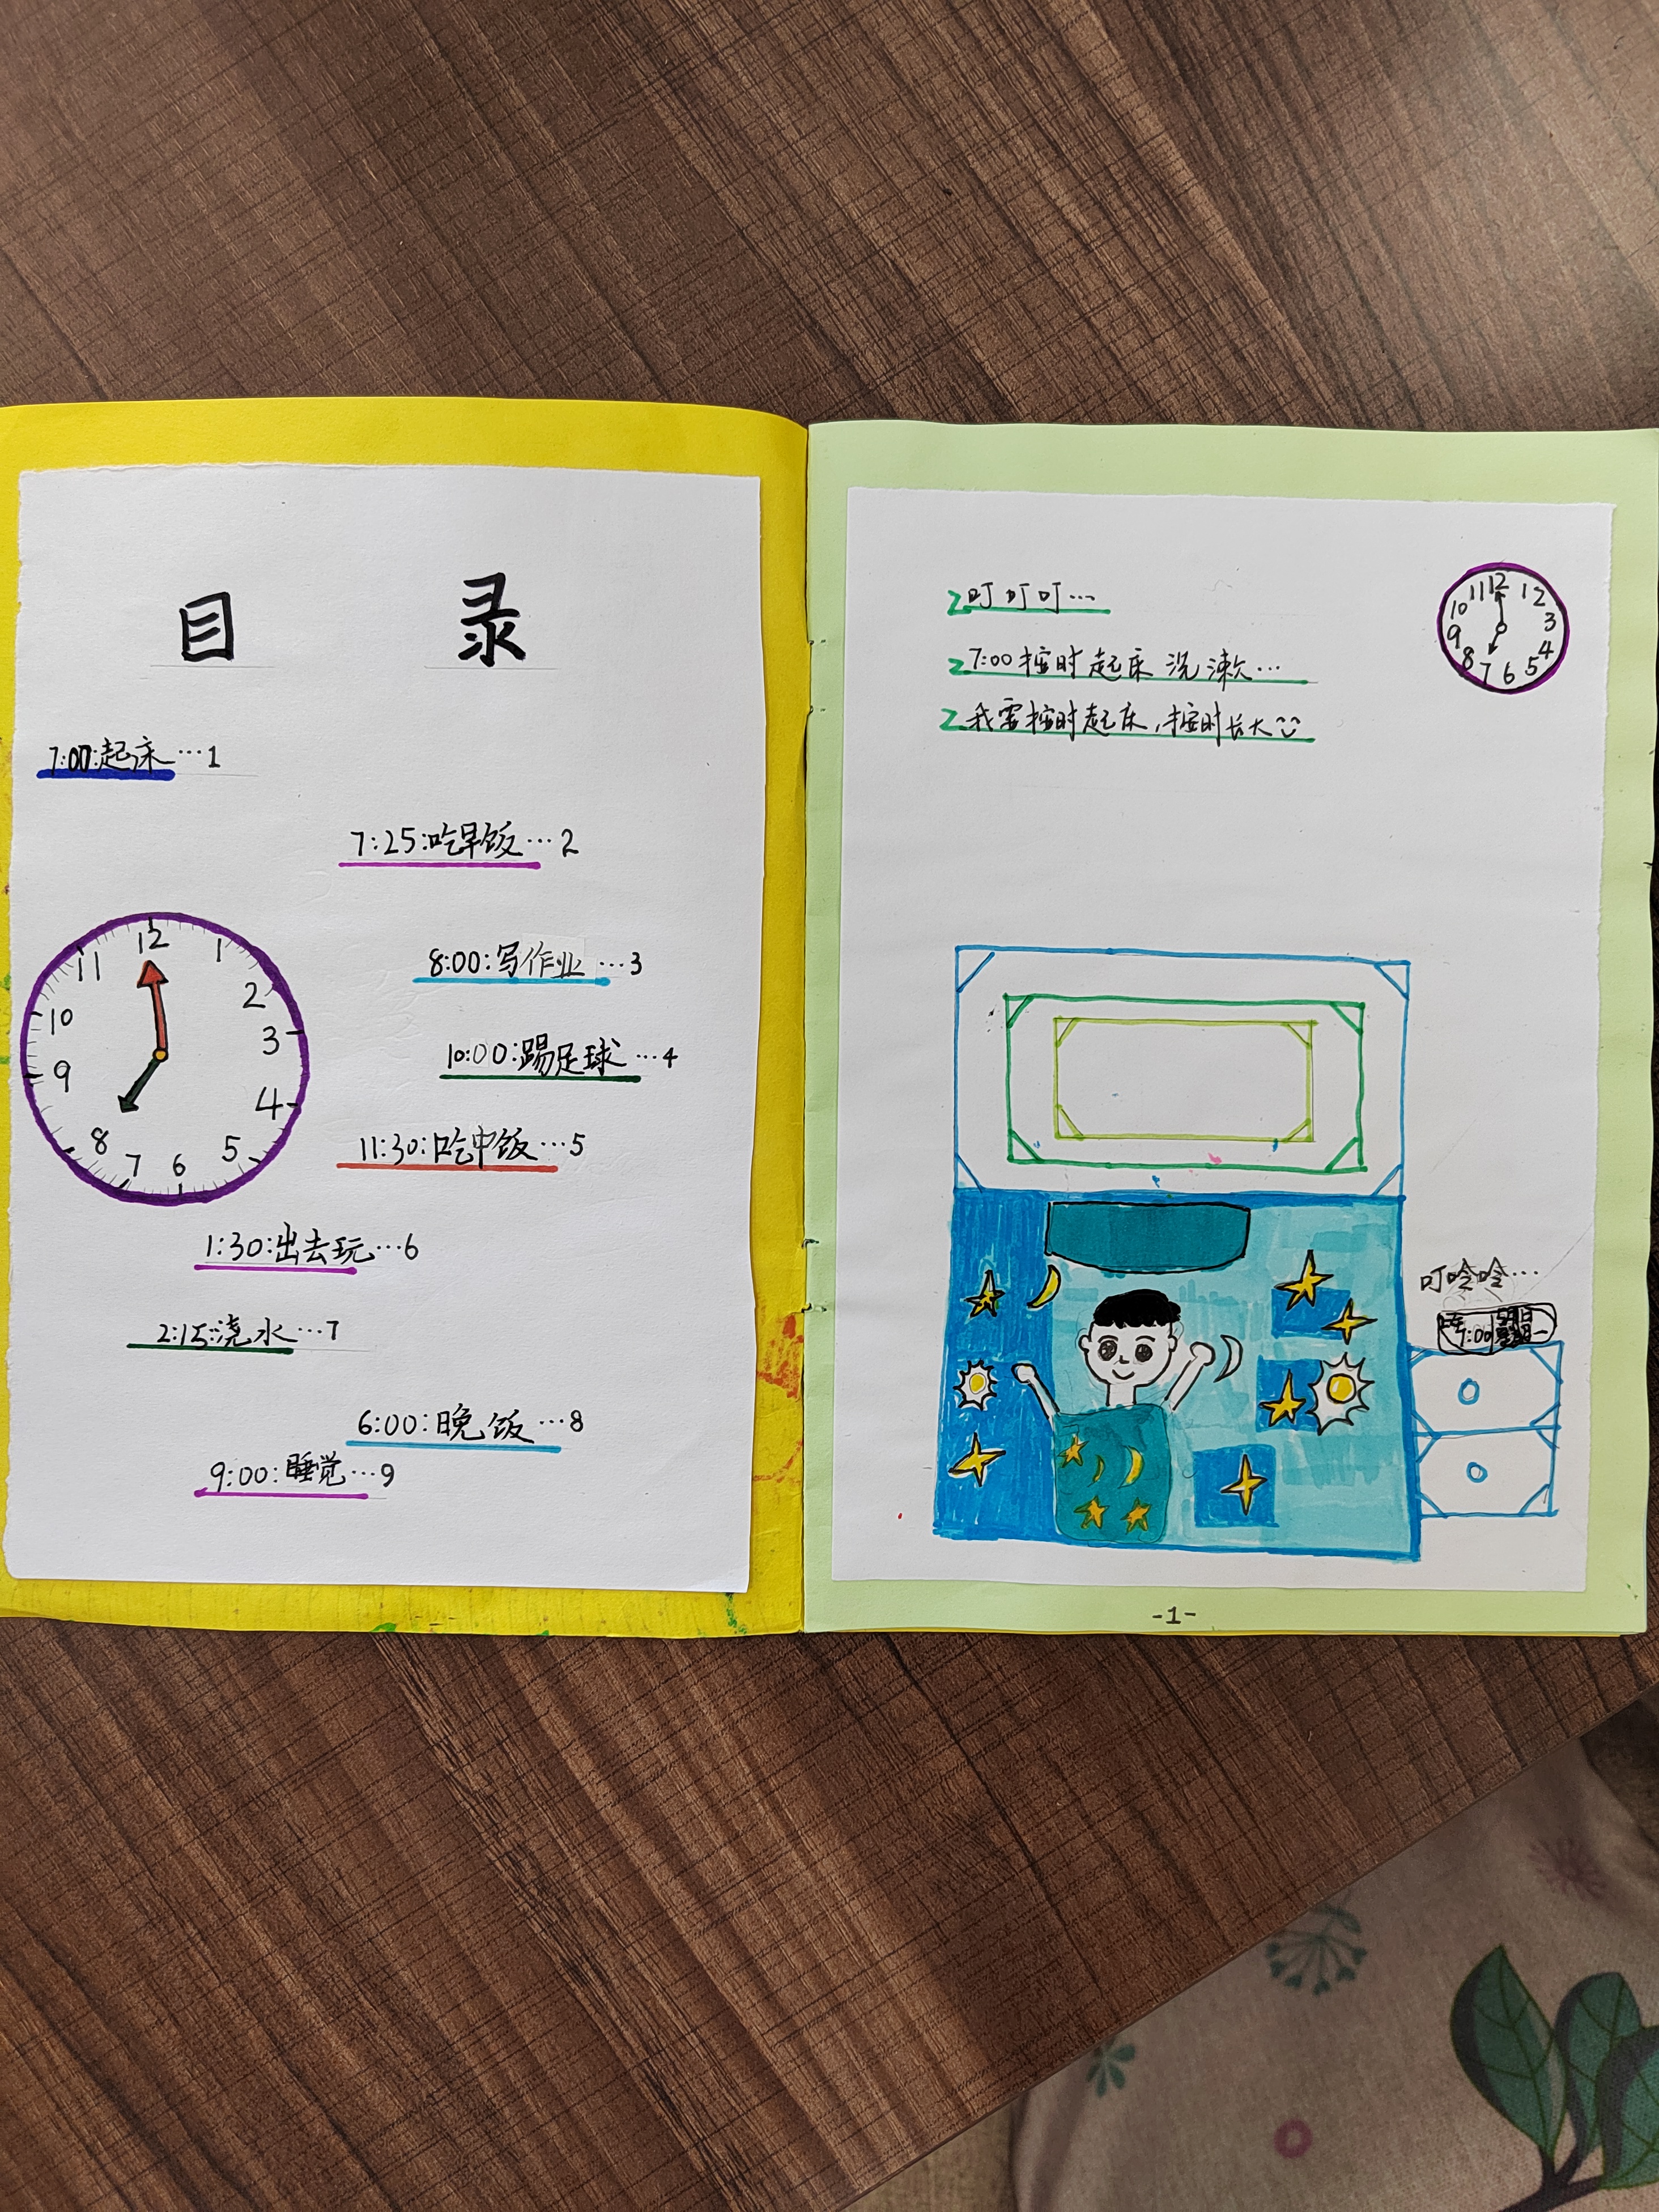 目 录
7:00:起床…1
7:25:吃早饭…2
8:00:写作业…3
10:00:踢足球…4
11:30:吃中饭…5
1:30:出去玩…6
2:15:浇水…7
6:00:晚饭…8
9:00:睡觉…9
12
1
2
3
4
5
6
7
8
9
10
11
叮叮叮…
7:00按时起床 洗漱…
我要按时起床,按时长大
12
1
2
3
4
5
6
7
8
9
10
11
叮呤呤…
7:00
-1-